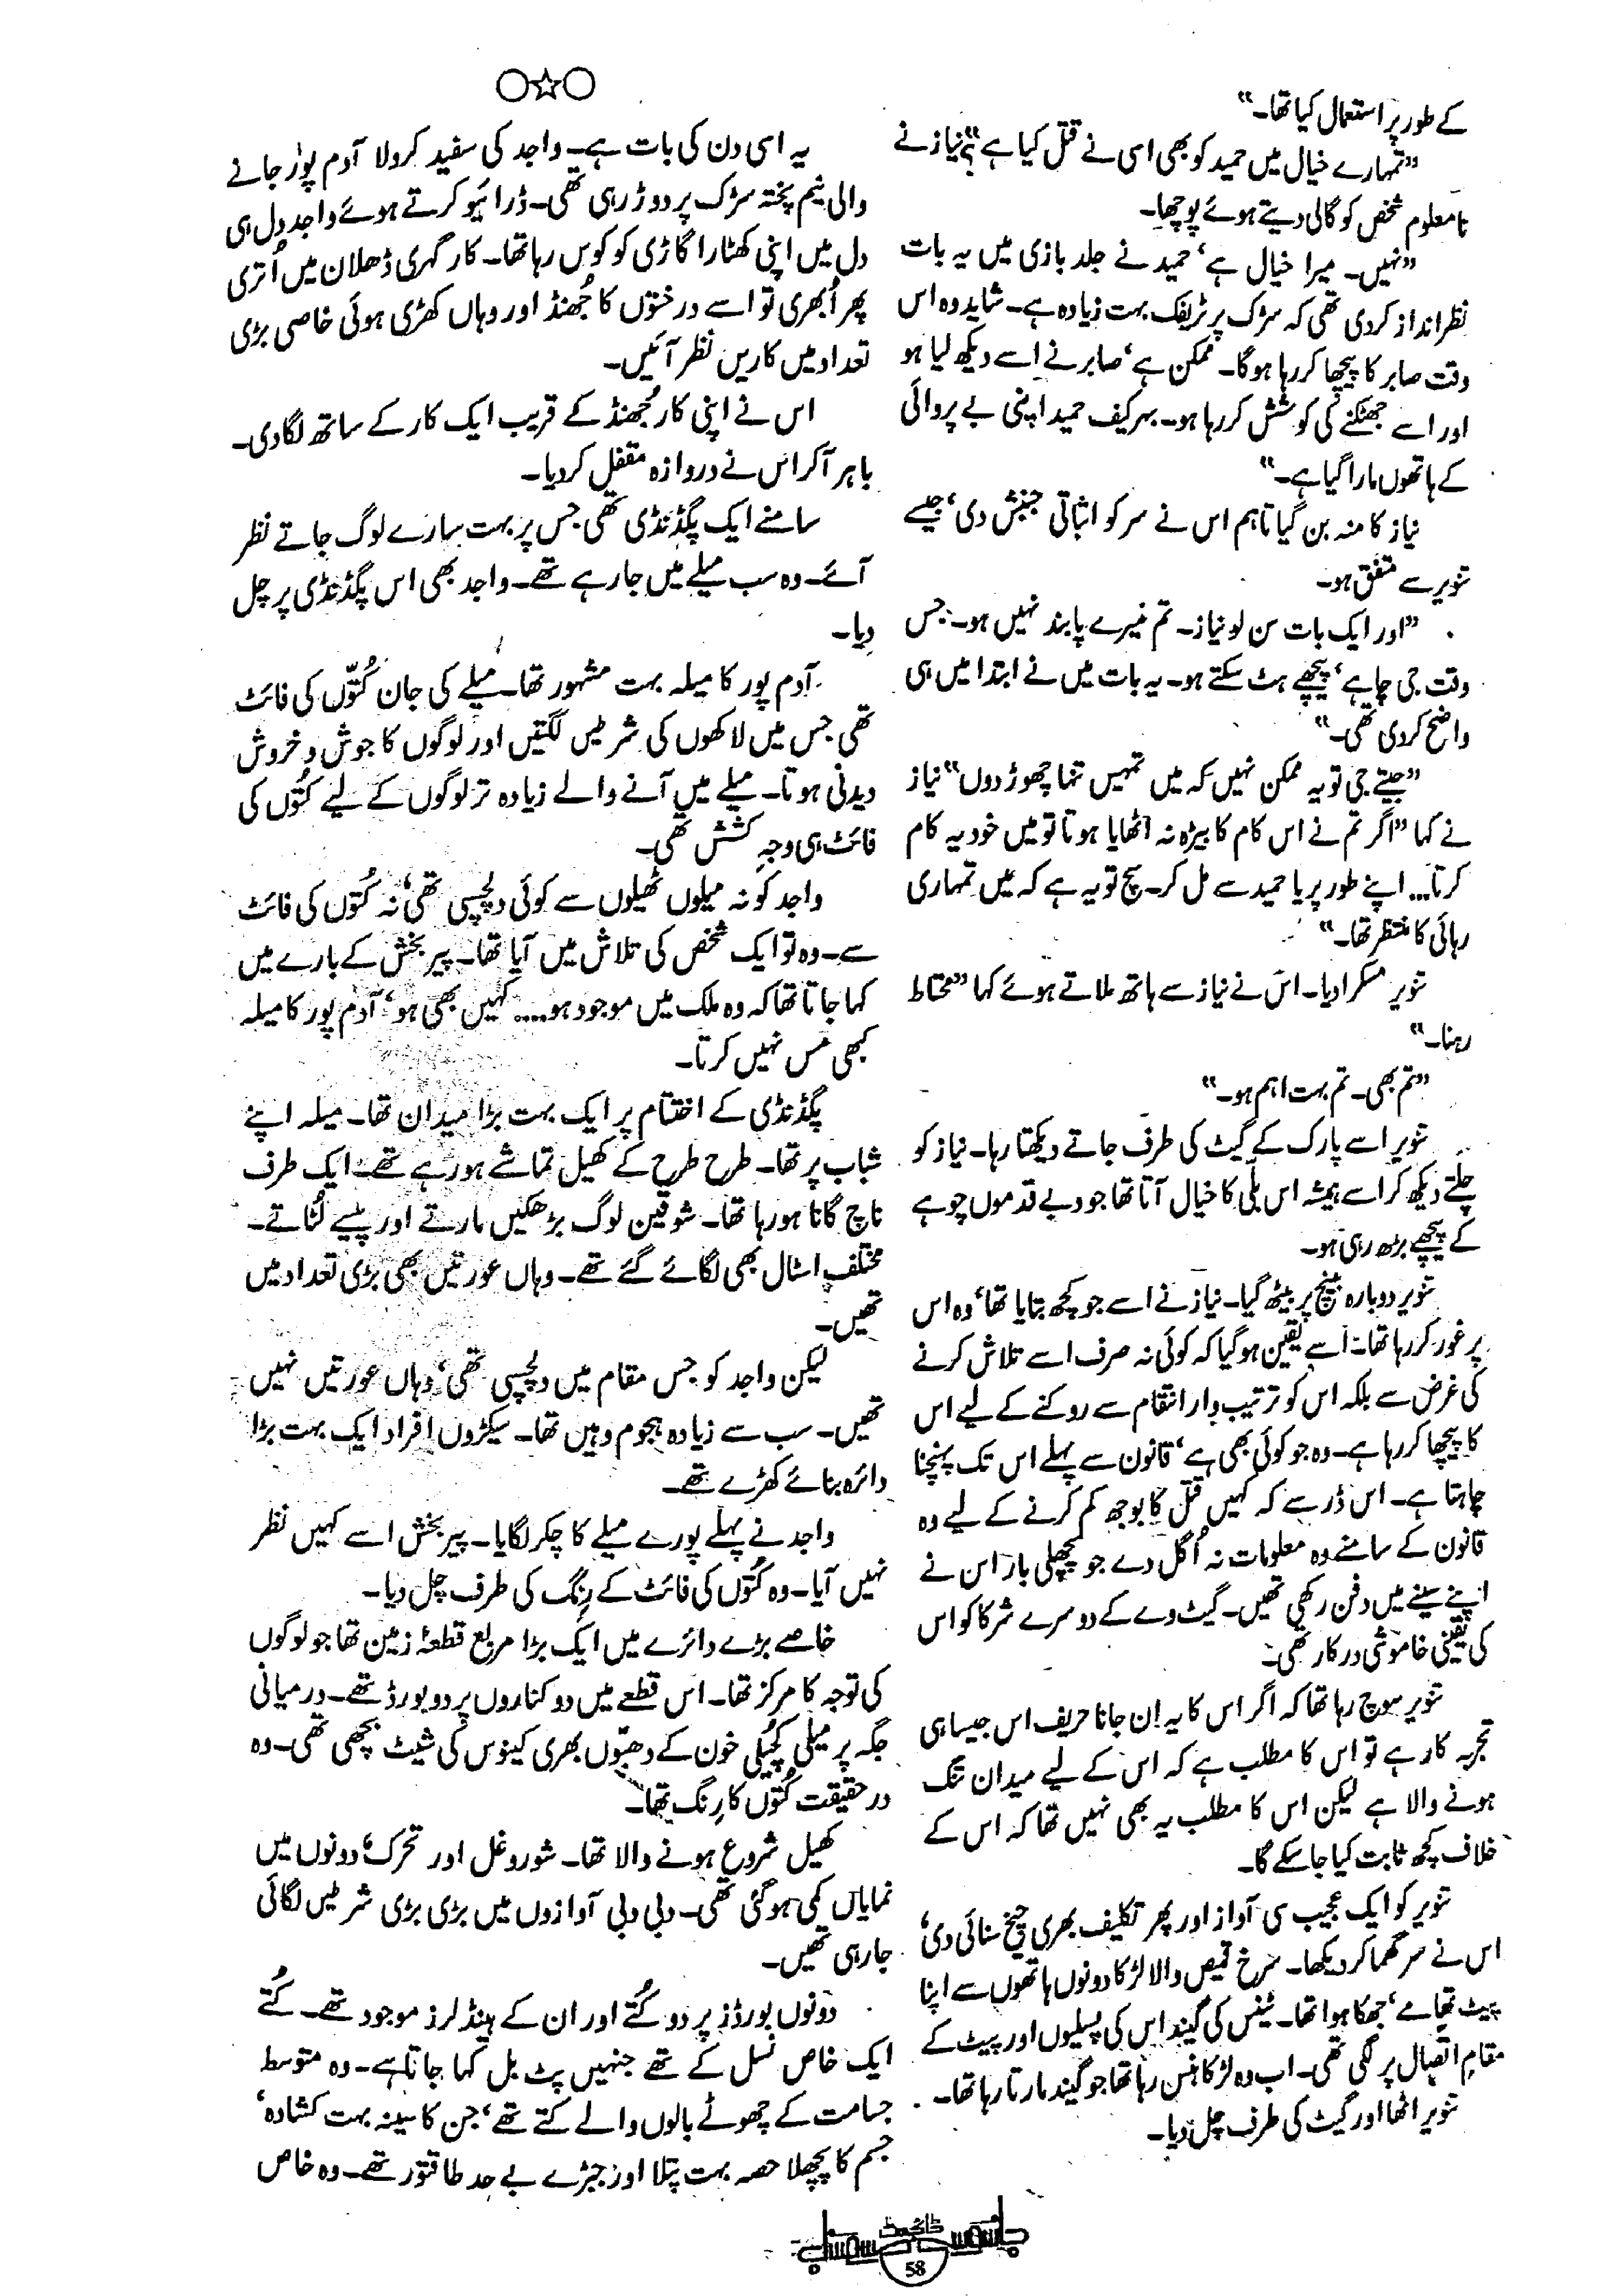 کے طور پر استعمال کیا تھا۔"
"تمہارے خیال میں حمید کو بھی اسی نے قتل کیا ہے؟" نیاز نے
نا معلوم شخص کو گالی دیتے ہوئے پوچھا۔
"نہیں۔ میرا خیال ہے، حمید نے جلد بازی میں یہ بات
نظر انداز کردی تھی کہ سڑک پر ٹریفک بہت زیادہ ہے۔ شاید وہ اس
وقت صابر کا پیچھا کررہا ہوگا۔ ممکن ہے، صابر نے اسے دیکھ لیا ہو
اور اسے جھٹکنے کی کوشش کررہا ہو۔ بہرکیف حمید اپنی بے پروائی
کے ہاتھوں مارا گیا ہے۔"
نیاز کا منہ بن گیا تاہم اس نے سر کو اثباتی جنبش دی، جیسے
تنویر سے متفق ہو۔
"اور ایک بات سن لو نیاز۔ تم میرے پابند نہیں ہو۔ جس
وقت جی چاہے، پیچھے ہٹ سکتے ہو۔ یہ بات میں نے ابتدا میں ہی
واضح کردی تھی۔"
"جیتے جی تو یہ ممکن نہیں کہ میں تمہیں تنہا چھوڑ دوں" نیاز
نے کہا "اگر تم نے اس کام کا بیڑہ نہ اٹھایا ہوتا تو میں خود یہ کام
کرتا... اپنے طور پر یا حمید سے مل کر۔ سچ تو یہ ہے کہ میں تمہاری
رہائی کا منتظر تھا۔"
تنویر مسکرا دیا۔ اس نے نیاز سے ہاتھ ملاتے ہوئے کہا "محتاط
رہنا۔"
"تم بھی۔ تم بہت اہم ہو۔"
تنویر اسے پارک کے گیٹ کی طرف جاتے دیکھتا رہا۔ نیاز کو
چلتے دیکھ کر اسے ہمیشہ اس بلی کا خیال آتا تھا جو دبے قدموں چوہے
کے پیچھے بڑھ رہی ہو۔
تنویر دوبارہ بینچ پر بیٹھ گیا۔ نیاز نے اسے جو کچھ بتایا تھا، وہ اس
پر غور کررہا تھا۔ اسے یقین ہوگیا کہ کوئی نہ صرف اسے تلاش کرنے
کی غرض سے بلکہ اس کو ترتیب وار انتقام سے روکنے کے لیے اس
کا پیچھا کررہا ہے۔ وہ جو کوئی بھی ہے، قانون سے پہلے اس تک پہنچنا
چاہتا ہے۔ اس ڈر سے کہ کہیں قتل کا بوجھ کم کرنے کے لیے وہ
قانون کے سامنے وہ معلومات نہ اُگل دے جو پچھلی بار اس نے
اپنے سینے میں دفن رکھی تھیں۔ گیٹ وے کے دوسرے شرکا کو اس
کی یقینی خاموشی درکار تھی۔
تنویر سوچ رہا تھا کہ اگر اس کا یہ اِن جانا حریف اس جیسا ہی
تجربہ کار ہے تو اس کا مطلب ہے کہ اس کے لیے میدان تنگ
ہونے والا ہے لیکن اس کا مطلب یہ بھی نہیں تھا کہ اس کے
خلاف کچھ ثابت کیا جاسکے گا۔
تنویر کو ایک عجیب سی آواز اور پھر تکلیف بھری چیخ سنائی دی،
اس نے سر گھما کر دیکھا۔ سرخ قمیص والا لڑکا دونوں ہاتھوں سے اپنا
پیٹ تھامے، جھکا ہوا تھا۔ ٹینس کی گیند اس کی پسلیوں اور پیٹ کے
مقامِ اتصال پر لگی تھی۔ اب وہ لڑکا ہنس رہا تھا جو گیند مارتا رہا تھا۔
تنویر اٹھا اور گیٹ کی طرف چل دیا۔
○☆○
یہ اسی دن کی بات ہے۔ واجد کی سفید کرولا آدم پور جانے
والی نیم پختہ سڑک پر دوڑ رہی تھی۔ ڈرائیو کرتے ہوئے واجد دل ہی
دل میں اپنی کھٹارا گاڑی کو کوس رہا تھا۔ کار گہری ڈھلان میں اُتری
پھر اُبھری تو اسے درختوں کا جُھنڈ اور وہاں کھڑی ہوئی خاصی بڑی
تعداد میں کاریں نظر آئیں۔
اس نے اپنی کار جُھنڈ کے قریب ایک کار کے ساتھ لگادی۔
باہر آکر اس نے دروازہ مقفل کردیا۔
سامنے ایک پگڈنڈی تھی جس پر بہت سارے لوگ جاتے نظر
آئے۔ وہ سب میلے میں جارہے تھے۔ واجد بھی اس پگڈنڈی پر چل
دیا۔
آدم پور کا میلہ بہت مشہور تھا۔ میلے کی جان کُتّوں کی فائٹ
تھی جس میں لاکھوں کی شرطیں لگتیں اور لوگوں کا جوش و خروش
دیدنی ہوتا۔ میلے میں آنے والے زیادہ تر لوگوں کے لیے کُتوں کی
فائٹ ہی وجہِ کشش تھی۔
واجد کو نہ میلوں ٹھیلوں سے کوئی دلچسپی تھی، نہ کُتوں کی فائٹ
سے۔ وہ تو ایک شخص کی تلاش میں آیا تھا۔ پیر بخش کے بارے میں
کہا جاتا تھا کہ وہ ملک میں موجود ہو.... کہیں بھی ہو، آدم پور کا میلہ
کبھی مس نہیں کرتا۔
پگڈنڈی کے اختتام پر ایک بہت بڑا میدان تھا۔ میلہ اپنے
شباب پر تھا۔ طرح طرح کے کھیل تماشے ہورہے تھے۔ ایک طرف
ناچ گانا ہورہا تھا۔ شوقین لوگ بڑھکیں مارتے اور پیسے لُٹاتے۔
مختلف اسٹال بھی لگائے گئے تھے۔ وہاں عورتیں بھی بڑی تعداد میں
تھیں۔
لیکن واجد کو جس مقام میں دلچسپی تھی، وہاں عورتیں نہیں
تھیں۔ سب سے زیادہ ہجوم وہیں تھا۔ سیکڑوں افراد ایک بہت بڑا
دائرہ بنائے کھڑے تھے۔
واجد نے پہلے پورے میلے کا چکر لگایا۔ پیر بخش اسے کہیں نظر
نہیں آیا۔ وہ کُتوں کی فائٹ کے رِنگ کی طرف چل دیا۔
خاصے بڑے دائرے میں ایک بڑا مربع قطعۂ زمین تھا جو لوگوں
کی توجہ کا مرکز تھا۔ اس قطعے میں دو کناروں پر دو بورڈ تھے۔ درمیانی
جگہ پر میلی کچیلی خون کے دھبّوں بھری کینوس کی شیٹ بچھی تھی۔ وہ
در حقیقت کُتوں کا رِنگ تھا۔
کھیل شروع ہونے والا تھا۔ شوروغل اور تحرک، دونوں میں
نمایاں کمی ہوگئی تھی۔ دبی دبی آوازوں میں بڑی بڑی شرطیں لگائی
جارہی تھیں۔
دونوں بورڈز پر دو کُتے اور ان کے ہینڈلرز موجود تھے۔ کُتے
ایک خاص نسل کے تھے جنہیں پٹ بل کہا جاتا ہے۔ وہ متوسط
جسامت کے چھوٹے بالوں والے کتے تھے، جن کا سینہ بہت کشادہ،
جسم کا پچھلا حصہ بہت پتلا اور جبڑے بے حد طاقتور تھے۔ وہ خاص
جاسوسی ڈائجسٹ
58